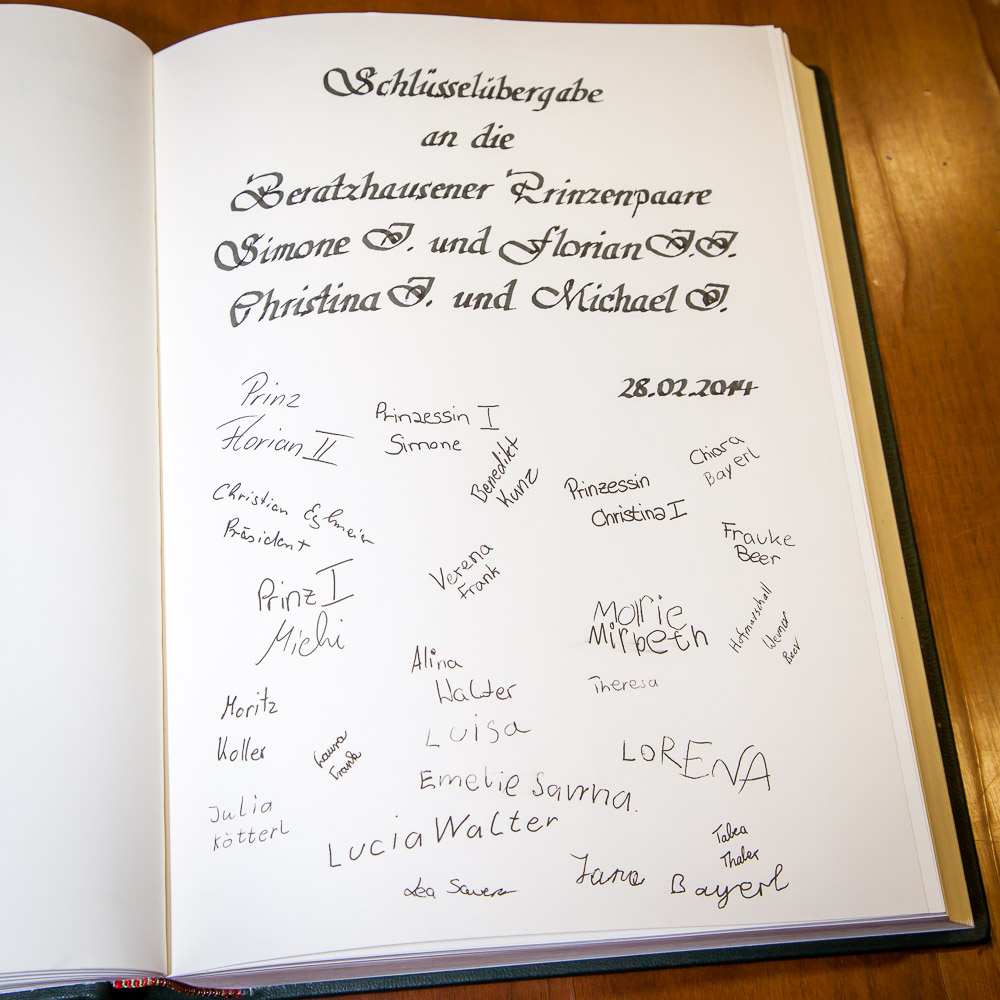 Schlüsselübergabe
an die
Beratzhausener Prinzenpaare
Simone I. und Florian I.I.
Christina I. und Michael I.
28.02.2014
Prinz
Florian II
Prinzessin I
Simone
Benedikt
Kunz
Chiara
Bayerl
Prinzessin
Christina I
Christian
Präsident
Frauke
Beer
Verena
Frank
Prinz I
Michi
Marie
Mirbeth
Hofmarschall
Werner
Beer
Alina
Walter
Theresa
Moritz
Koller
Laura
Frank
Luisa
LORENA
Emelie
Julia
Kötterl
Lucia Walter
Tabea
Thaler
Lea
Jana Bayerl